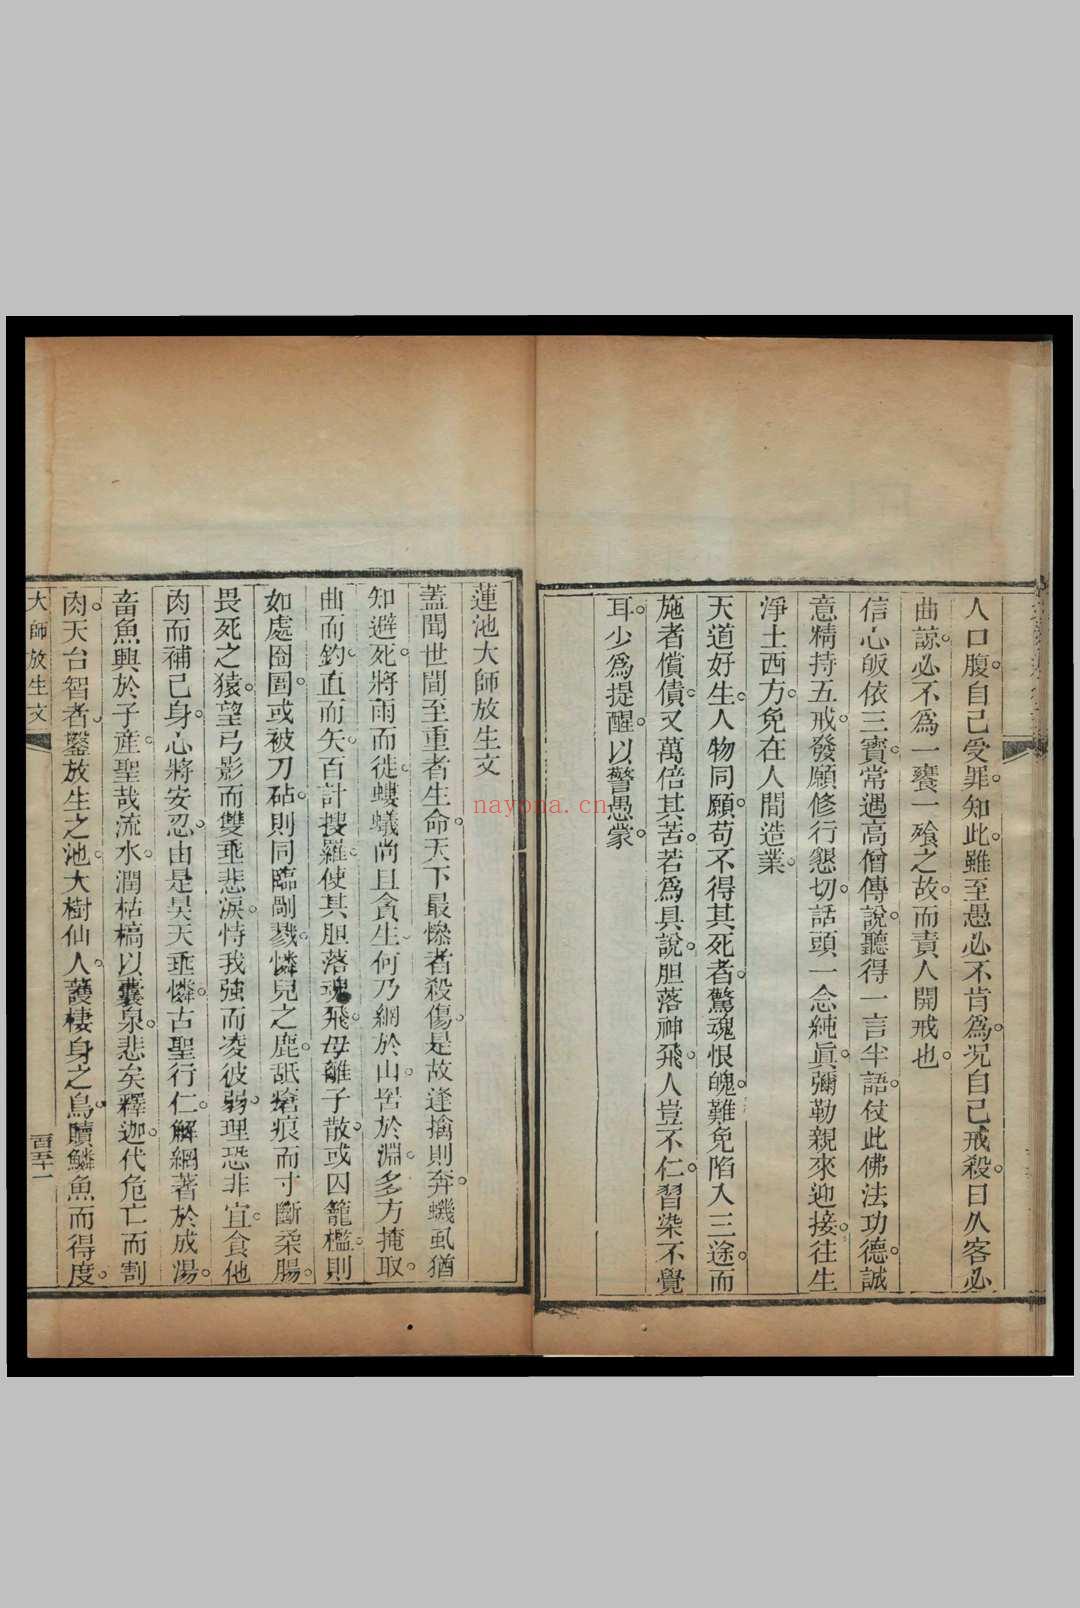 人口腹。自己受罪。知此。雖至愚必不肯爲。况自己戒殺。曰久客必
曲諒。必不爲一饔一飱之故。而責人開戒也。
信心皈依三寶。常遇高僧傳說。聽得一言半語。仗此佛法功德。誠
意精持五戒。發願修行懇切。話頭一念純眞。彌勒親來迎接。往生
淨土西方。免在人間造業。
天道好生。人物同願。苟不得其死者。驚魂恨魄。難免陷入三途。而
施者償債。又萬倍其苦。若爲具說。胆落神飛。人豈不仁。習染不覺
耳。少爲提醒。以警愚蒙。
蓮池大師放生文
蓋聞世間至重者生命。天下最慘者殺傷。是故逢擒則奔。蟣虱猶
知避死。將雨而徙。螻蟻尚且貪生。何乃網於山。罟於淵。多方掩取。
曲而鈎。直而矢。百計搜羅。使其胆落魂飛。母離子散。或囚籠檻。則
如處囹圄。或被刀砧。則同臨剮戮。憐兒之鹿。舐瘡痕而寸斷柔腸。
畏死之猿。望弓影而雙垂悲淚。恃我強而凌彼弱。理恐非宜。食他
肉而補己身。心將安忍。由是昊天垂憐。古聖行仁。解網著於成湯。
畜魚興於子產。聖哉流水。潤枯槁以囊泉。悲矣釋迦。代危亡而割
肉。天台智者。鑿放生之池。大樹仙人。護棲身之鳥。贖鱗魚而得度。
大師放生文
nayona.cn